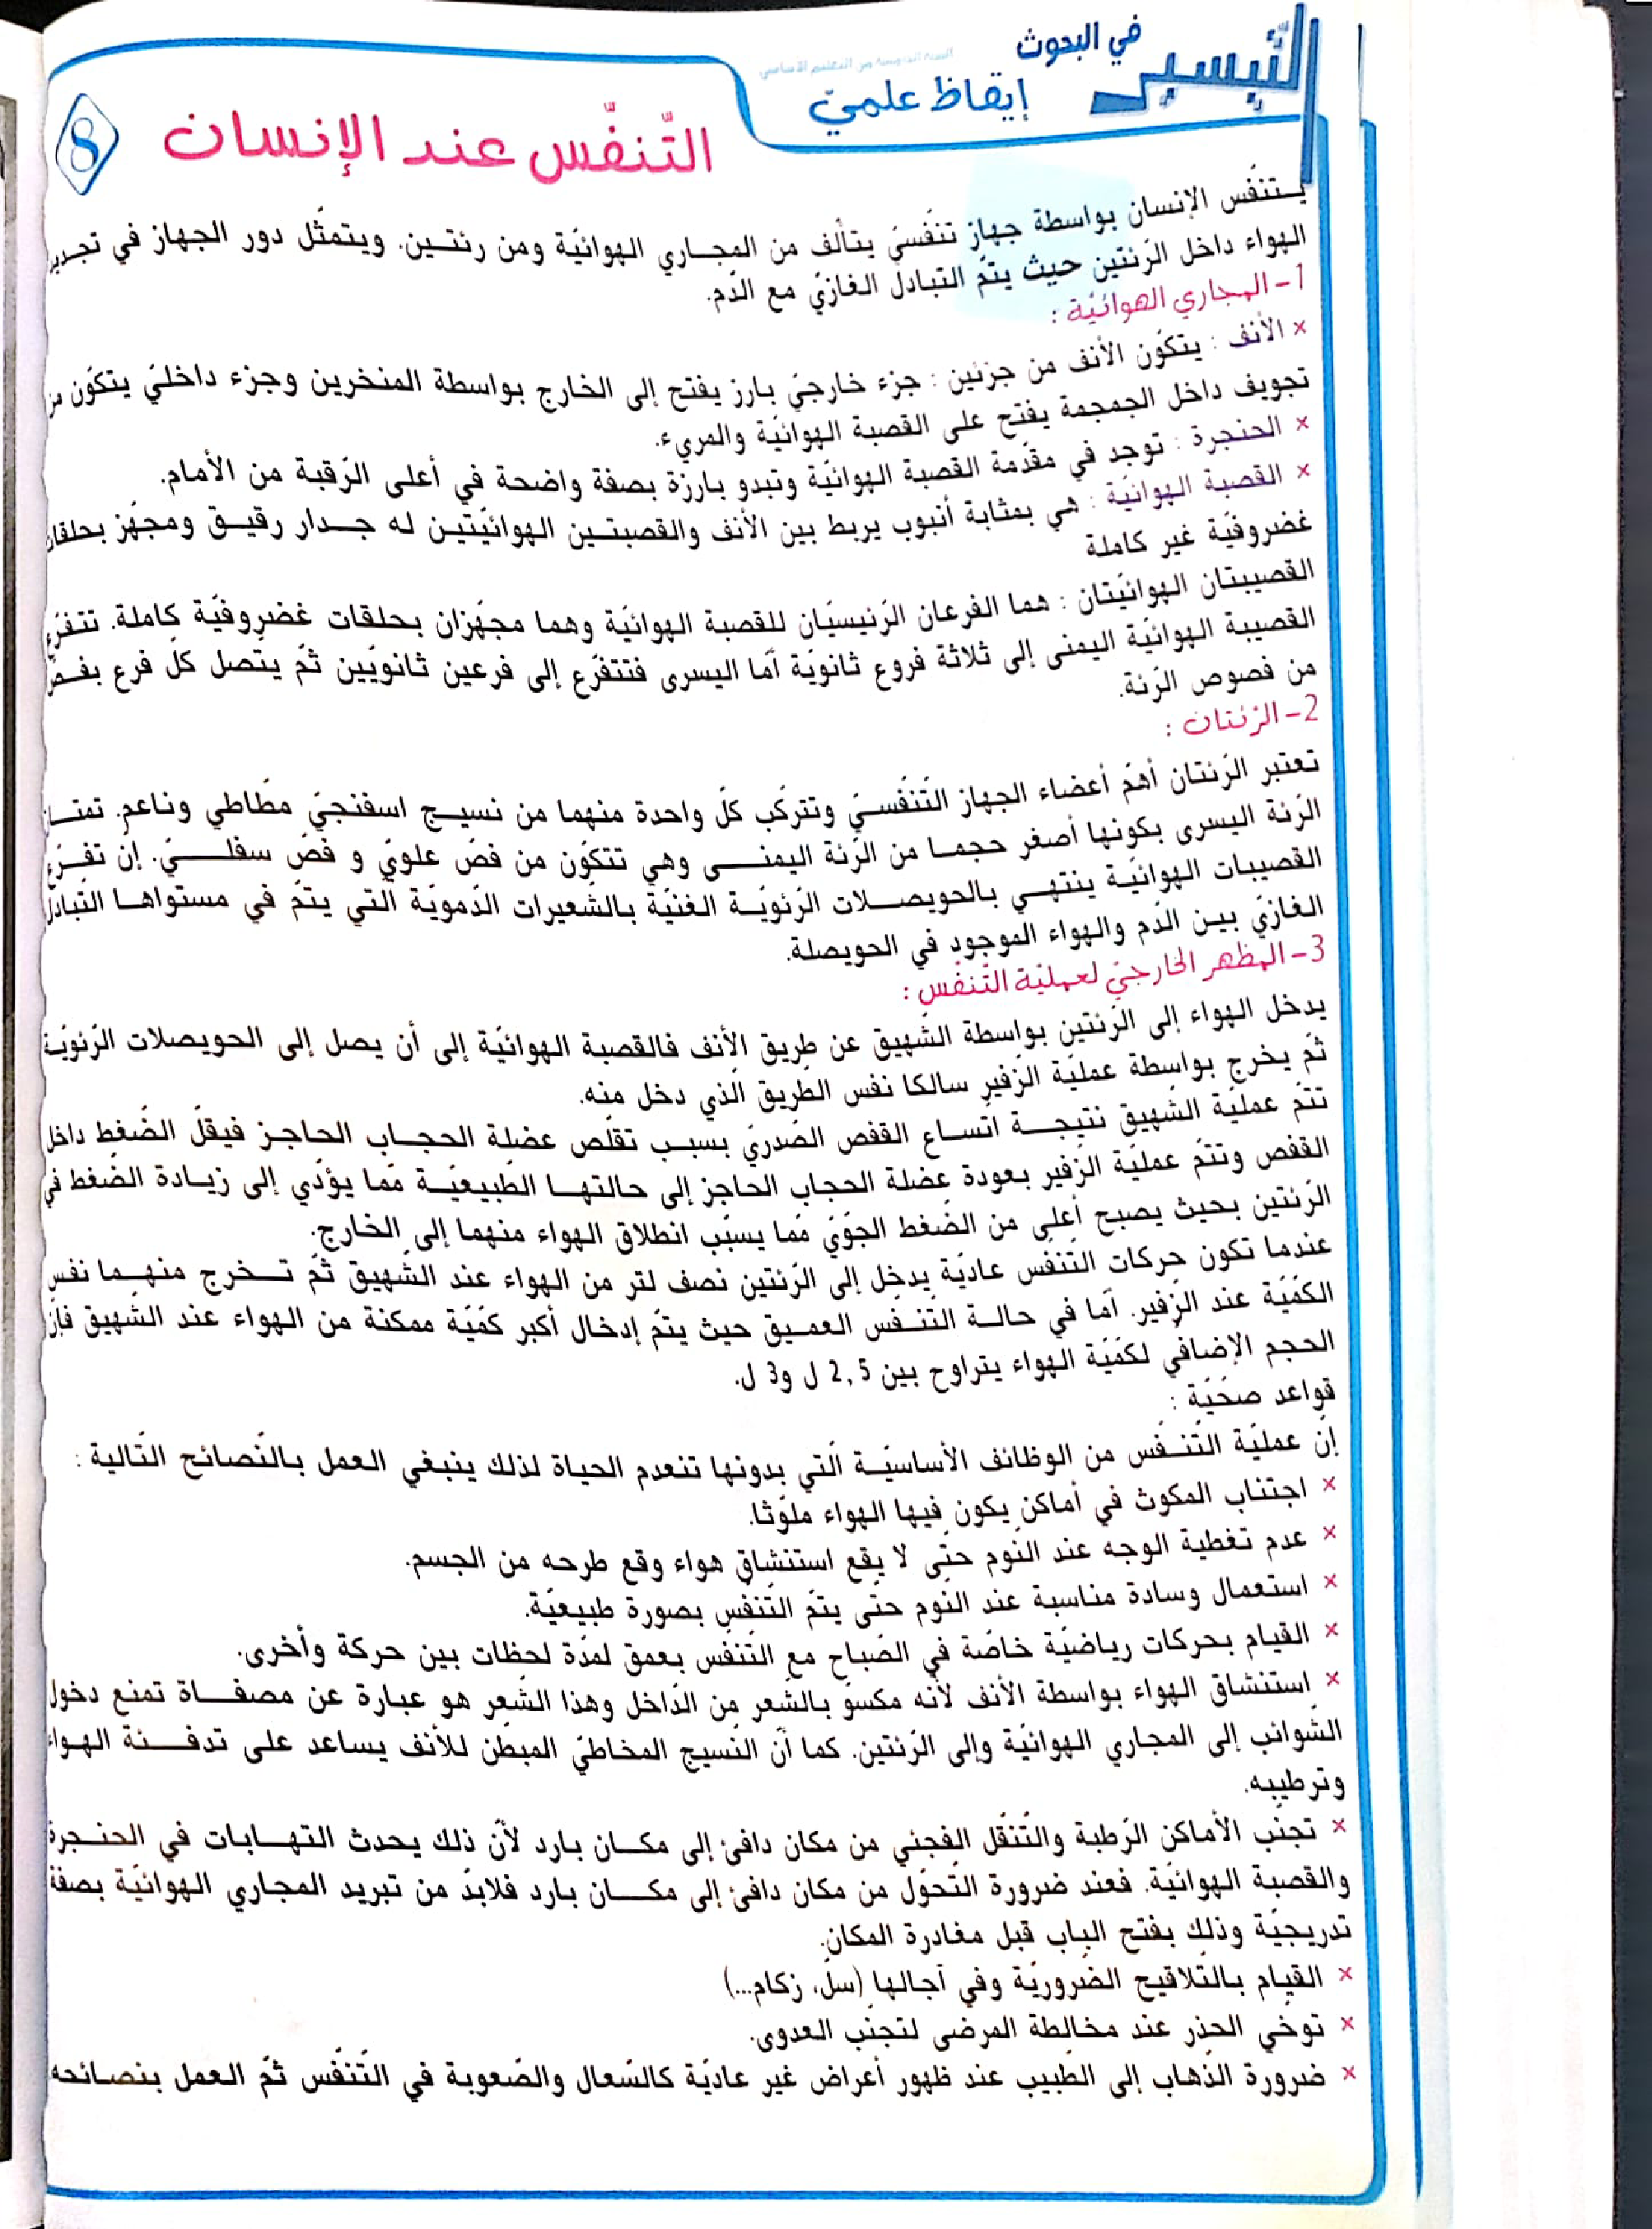 التّيسير
في البحوث
السنة السادسة من التعليم الأساسي
إيقاظ علميّ
8
التّنفّس عند الإنسان
يـتنفّس الإنسان بواسطة جهاز تنفّسيّ يتألف من المجـاري الهوائيّة ومن رئتـين. ويتمثّل دور الجهاز في تجديد
الهواء داخل الرّئتين حيث يتمّ التبادل الغازيّ مع الدّم.
1- المجاري الهوائيّة :
× الأنف : يتكوّن الأنف من جزئين : جزء خارجيّ بارز يفتح إلى الخارج بواسطة المنخرين وجزء داخليّ يتكوّن من
تجويف داخل الجمجمة يفتح على القصبة الهوائيّة والمريء.
× الحنجرة : توجد في مقدّمة القصبة الهوائيّة وتبدو بارزة بصفة واضحة في أعلى الرّقبة من الأمام.
× القصبة الهوائيّة : هي بمثابة أنبوب يربط بين الأنف والقصبتـين الهوائيّتـين له جـدار رقيـق ومجهّز بحلقات
غضروفيّة غير كاملة
القصيبتان الهوائيّتان : هما الفرعان الرّئيسيّان للقصبة الهوائيّة وهما مجهّزان بحلقات غضروفيّة كاملة. تتفرّع
القصيبة الهوائيّة اليمنى إلى ثلاثة فروع ثانويّة أمّا اليسرى فتتفرّع إلى فرعين ثانويّين ثمّ يتّصل كلّ فرع بفصّ
من فصوص الرّئة.
2- الرّئتان :
تعتبر الرّئتان أهمّ أعضاء الجهاز التّنفّسـيّ وتتركّب كلّ واحدة منهما من نسيـج اسفنجيّ مطّاطي وناعم. تمتـاز
الرّئة اليسرى بكونها أصغر حجمـا من الرّئة اليمنـى وهي تتكوّن من فصّ علويّ و فصّ سفلـيّ. إنّ تفـرّع
القصيبات الهوائيّـة ينتهـي بالحويصـلات الرّئويّـة الغنيّة بالشّعيرات الدّمويّة الّتي يتمّ في مستواهـا التّبادل
الغازيّ بيـن الدّم والهواء الموجود في الحويصلة.
3- المظهر الخارجيّ لعمليّة التّنفّس :
يدخل الهواء إلى الرّئتين بواسطة الشّهيق عن طريق الأنف فالقصبة الهوائيّة إلى أن يصل إلى الحويصلات الرّئويّة
ثمّ يخرج بواسطة عمليّة الزّفير سالكا نفس الطّريق الّذي دخل منه.
تتمّ عمليّة الشّهيق نتيجـة اتّسـاع القفص الصّدريّ بسبـب تقلّص عضلة الحجـاب الحاجـز فيقلّ الضّغط داخل
القفص وتتمّ عمليّة الزّفير بعودة عضلة الحجاب الحاجز إلى حالتهـا الطّبيعيّـة ممّا يؤدّي إلى زيـادة الضّغط في
الرّئتين بحيث يصبح أعلى من الضّغط الجوّيّ ممّا يسبّب انطلاق الهواء منهما إلى الخارج.
عندما تكون حركات التّنفّس عاديّة يدخل إلى الرّئتين نصف لتر من الهواء عند الشّهيق ثمّ تـخرج منهـما نفس
الكمّيّة عند الزّفير. أمّا في حالـة التّنـفّس العمـيق حيث يتمّ إدخال أكبر كمّيّة ممكنة من الهواء عند الشّهيق فإنّ
الحجم الإضافي لكمّيّة الهواء يتراوح بين 2,5 ل و3 ل.
قواعد صحّيّة :
إنّ عمليّة التّنـفّس من الوظائف الأساسيّـة الّتي بدونها تنعدم الحياة لذلك ينبغي العمل بالنّصائح التّالية :
× اجتناب المكوث في أماكن يكون فيها الهواء ملوّثا.
× عدم تغطية الوجه عند النّوم حتّى لا يقع استنشاق هواء وقع طرحه من الجسم.
× استعمال وسادة مناسبة عند النّوم حتّى يتمّ التّنفّس بصورة طبيعيّة.
× القيام بحركات رياضيّة خاصّة في الصّباح مع التّنفّس بعمق لمدّة لحظات بين حركة وأخرى.
× استنشاق الهواء بواسطة الأنف لأنّه مكسوّ بالشّعر من الدّاخل وهذا الشّعر هو عبارة عن مصفـاة تمنع دخول
الشّوائب إلى المجاري الهوائيّة وإلى الرّئتين. كما أنّ النّسيج المخاطيّ المبطّن للأنف يساعد على تدفـئة الهـواء
وترطيبه.
× تجنّب الأماكن الرّطبة والتّنقّل الفجئي من مكان دافئ إلى مكـان بارد لأنّ ذلك يحدث التهـابات في الحنـجرة
والقصبة الهوائيّة. فعند ضرورة التّحوّل من مكان دافئ إلى مكـان بارد فلابدّ من تبريد المجاري الهوائيّة بصفة
تدريجيّة وذلك بفتح الباب قبل مغادرة المكان.
× القيام بالتّلاقيح الضّروريّة وفي آجالها (سلّ، زكام...)
× توخّي الحذر عند مخالطة المرضى لتجنّب العدوى.
× ضرورة الذّهاب إلى الطّبيب عند ظهور أعراض غير عاديّة كالسّعال والصّعوبة في التّنفّس ثمّ العمل بنصائحه